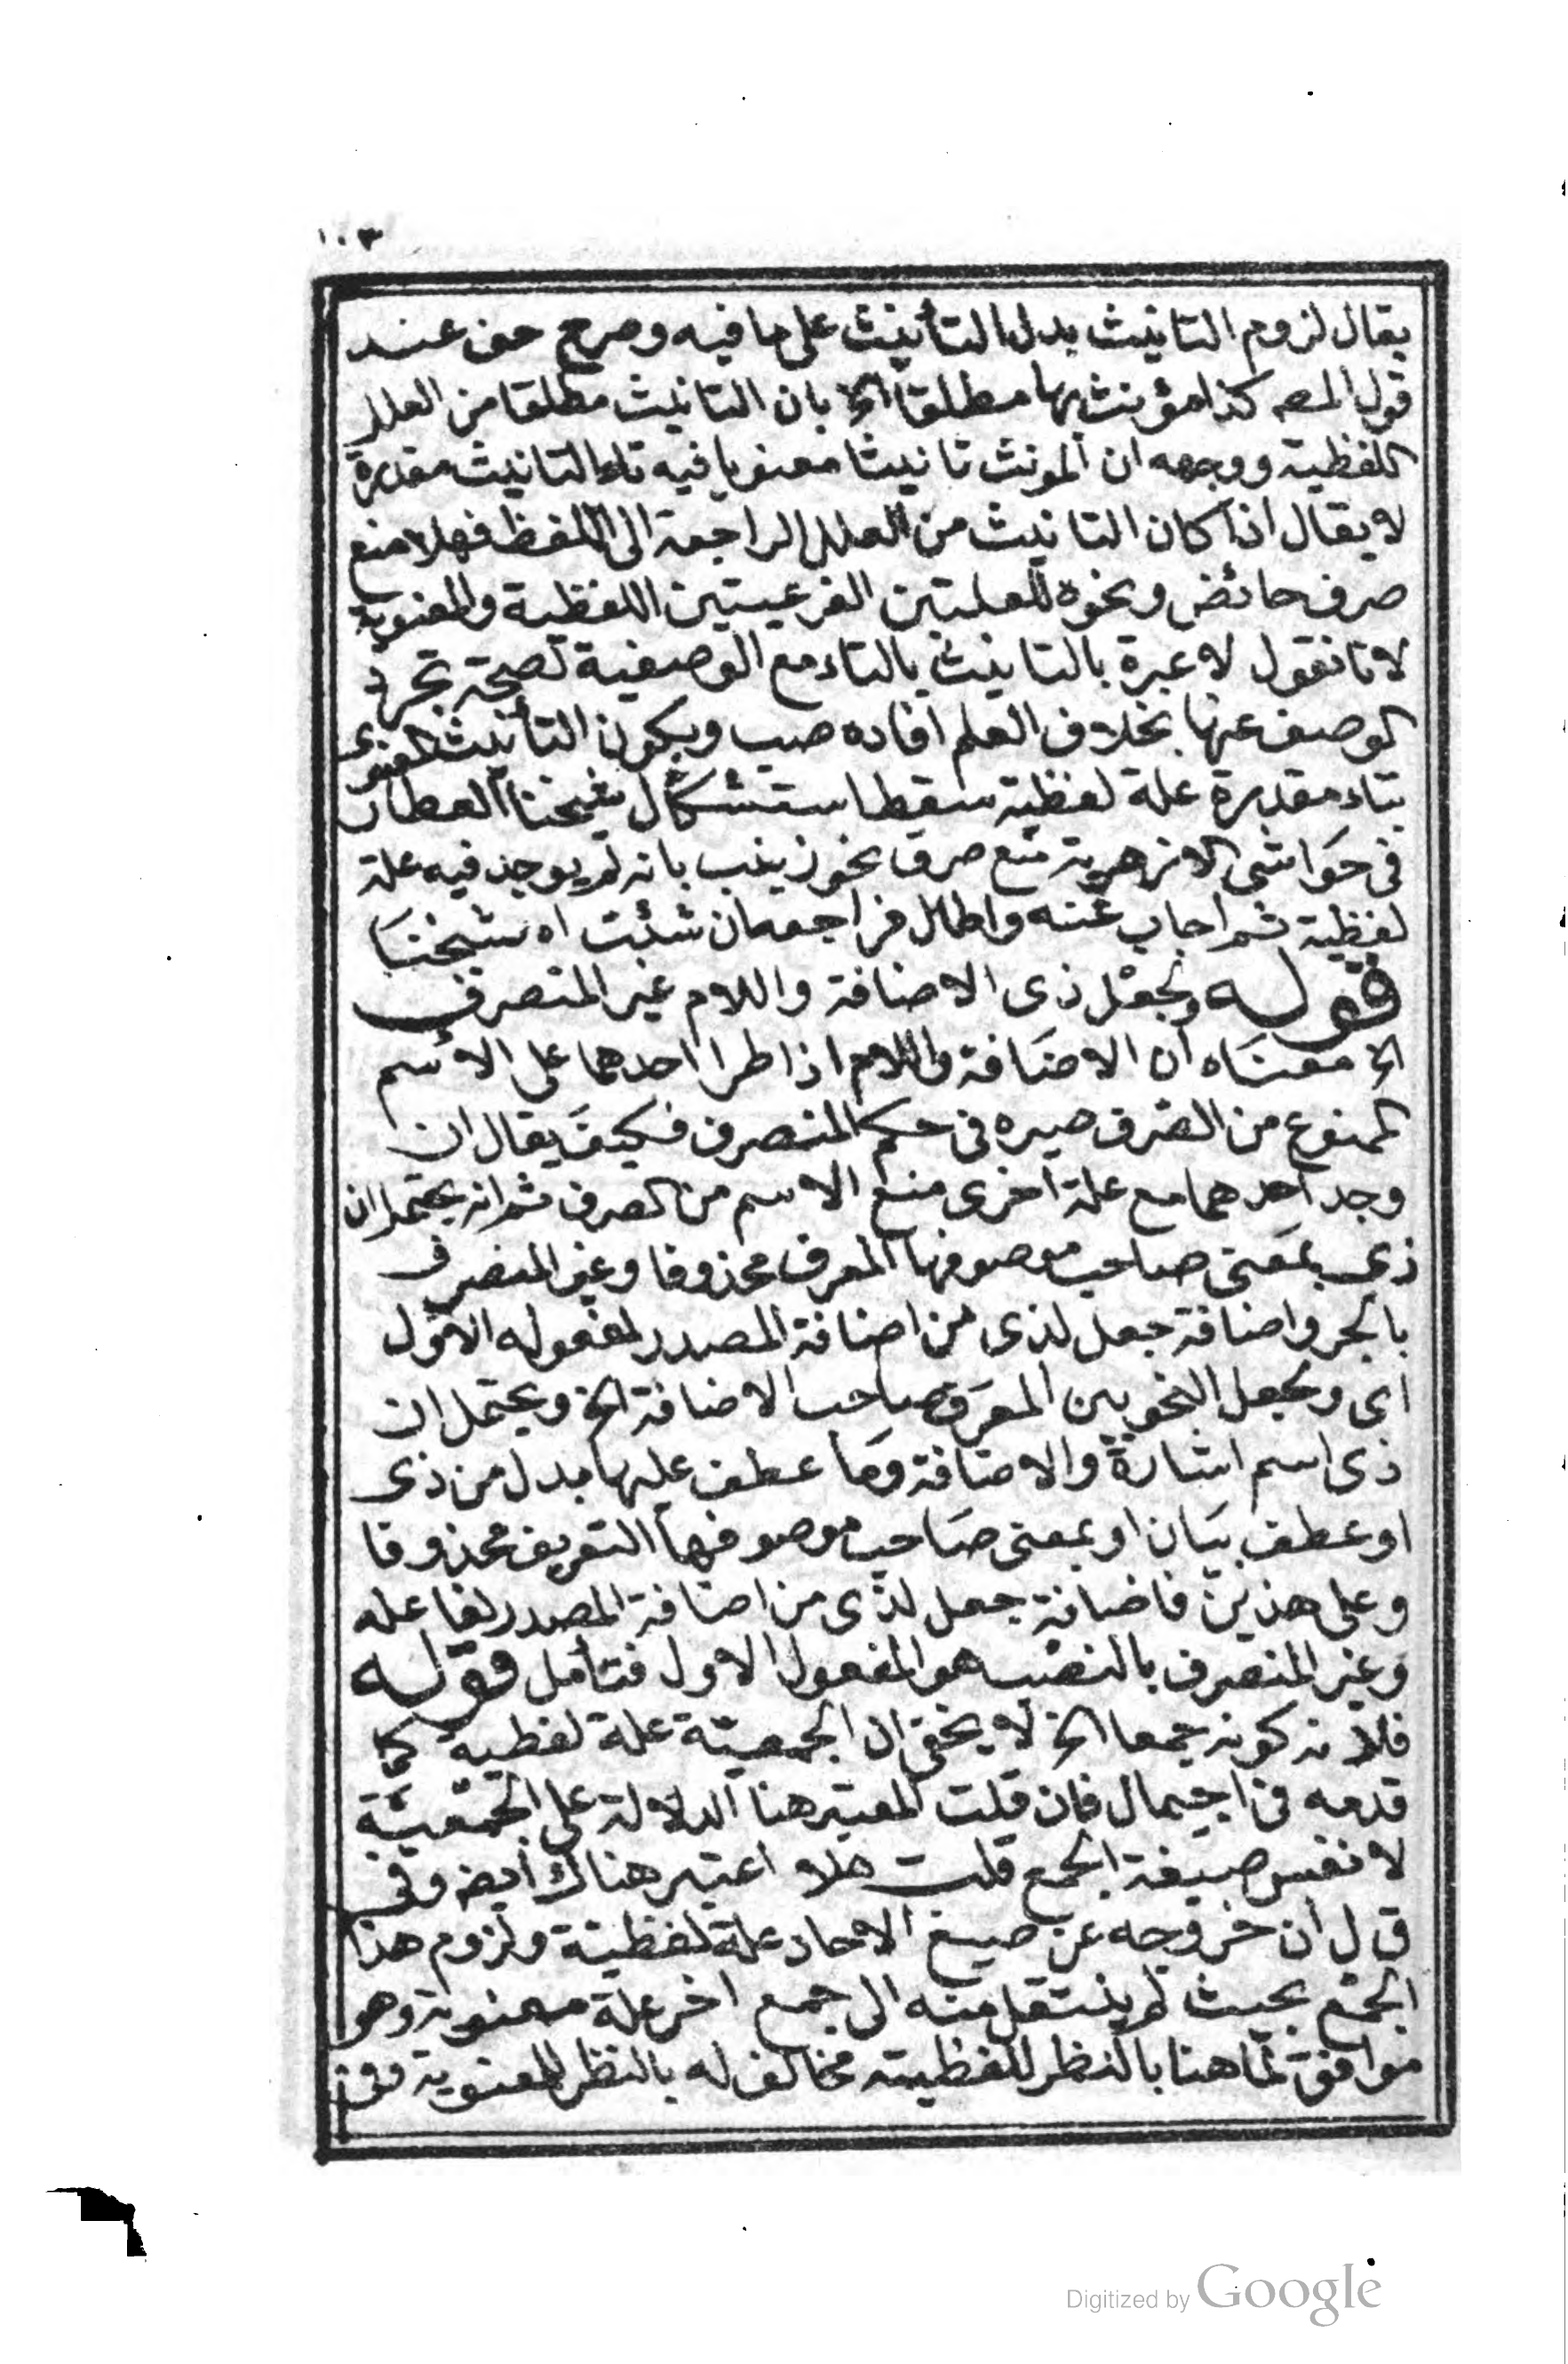 ١٠٣
يقال لزوم التانيث بدل التأنيث على ما فيه وصرح حف عند
قول المصه كذا مؤنث بها مطلقا الخ بان التانيث مطلقا من العلل
اللفظية ووجهه ان المونث تانيثا معنويا فيه تاء التانيث مقدرة
لا يقال اذا كان التانيث من العلل الراجعة الى اللفظ فهلا منع
صرف حائض ونحوه للعلتين الفرعيتين اللفظية والمعنوية
لانا نقول لا عبرة بالتانيث بالتاء مع الوصفية لصحة تجرد
الوصف عنها بخلاف العلم افاده صب وبكون التأنيث المعنوى
بتاء مقدرة علة لفظية سقط استشكال شيخنا العطار
فى حواشى الازهرية منع صرف نحو زينب بانه لم يوجد فيه علة
لفظية ثم اجاب عنه واطال فراجعه ان شئت اه شيخنا
قوله وبجعل ذى الاضافة واللام غير المنصرف
الخ معناه ان الاضافة واللام اذا طرا احدهما على الاسم
الممنوع من الصرف صيره فى حكم المنصرف فكيف يقال ان
وجد احدهما مع علة اخرى منع الاسم من الصرف ثم انه يحتمل ان
ذى بمعنى صاحب موصوفها المعرف محذوفا وغير المنصرف
بالجر واضافة جعل لذى من اضافة المصدر لمفعوله الاول
اى وبجعل النحويين المعرف صاحب الاضافة الخ ويحتمل ان
ذى اسم اشارة والاضافة وما عطف عليها بدل من ذى
او عطف بيان او بمعنى صاحب موصوفها التعريف محذوفا
وعلى هذين فاضافة جعل لذى من اضافة المصدر لفاعله
وغير المنصرف بالنصب هو المفعول الاول فتأمل قوله
فلانه كونه جمعا الخ لا يخفى ان الجمعية علة لفظية كما
قدمه فى اجيمال فان قلت المعتبر هنا الدلالة على الجمعية
لا نفس صيغة الجمع قلت هلا اعتبر هناك ايضه وفى
ق ل ان خروجه عن صيغ الاحاد علة لفظية ولزوم هذا
الجمع بحيث لم ينتقل منه الى جمع اخر علة معنوية وهو
موافق لما هنا بالنظر للفظية مخالف له بالنظر للمعنوية وفى
Digitized by Google